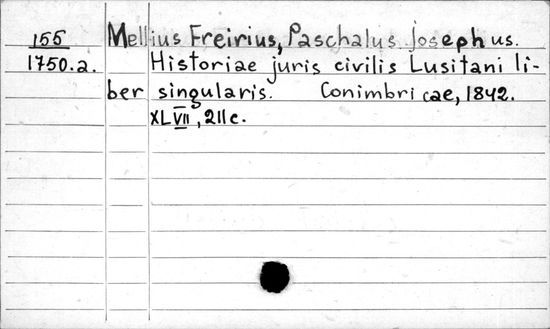 155 Mellius Freirius, Paschalus Josephus.
1750.a. Historiae juris civilis Lusitani li-
ber singularis. Conimbricae, 1842.
XLVII, 211c.